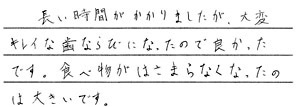 長い時間がかかりましたが、大変
キレイな歯ならびになったので良かった
です。食べ物がはさまらなくなったの
は大きいです。